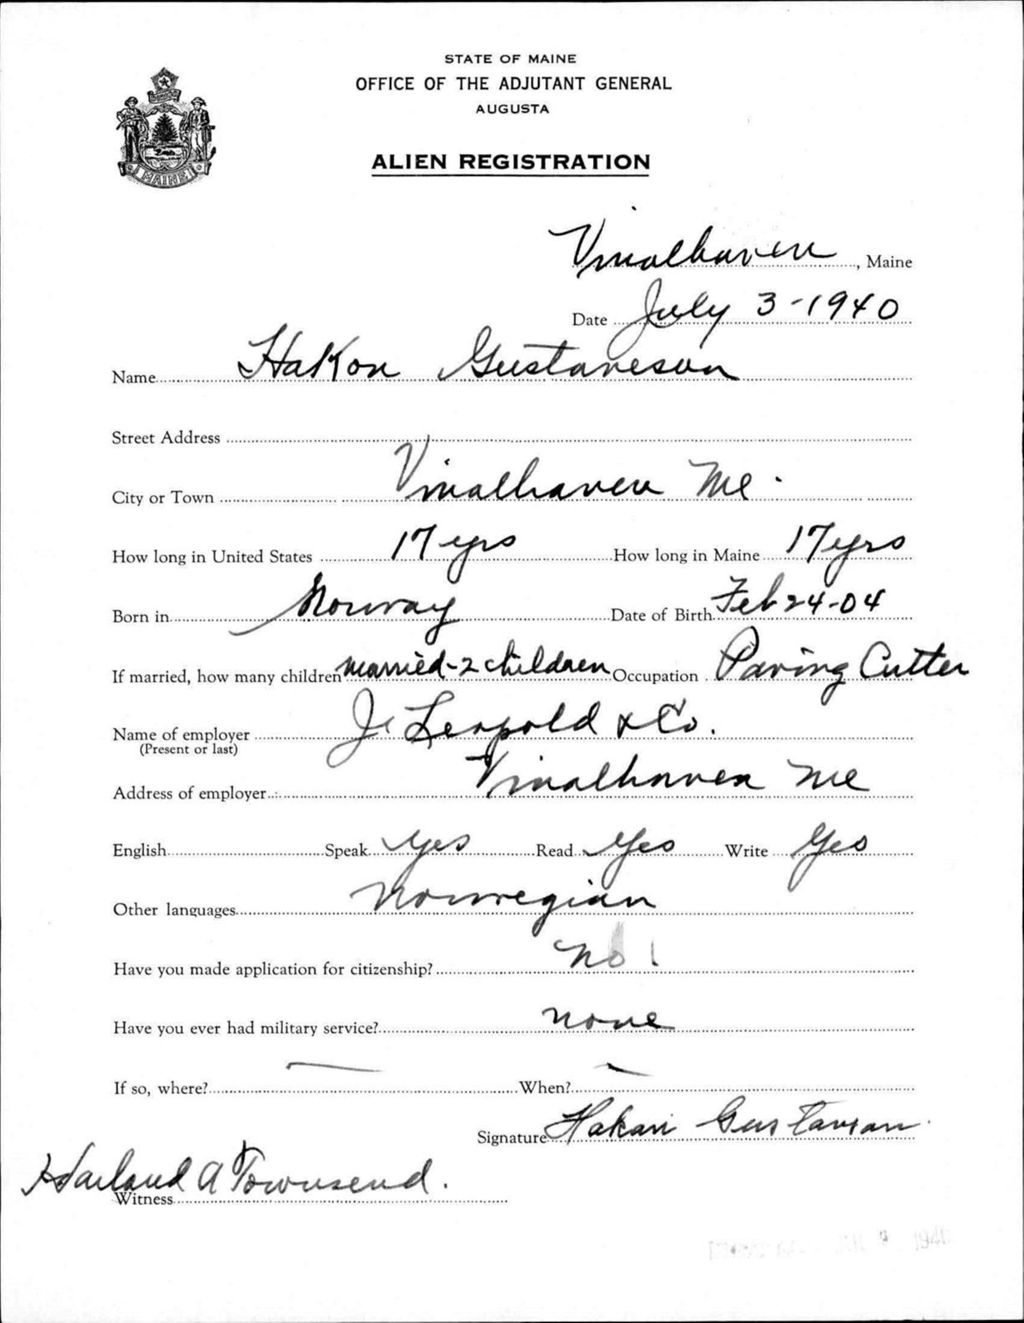 STATE OF MAINE
OFFICE OF THE ADJUTANT GENERAL
AUGUSTA
ALIEN REGISTRATION
MAINE
Vinalhaven, Maine
Date July 3-1940
Name Hakon Gustaveson
Street Address
City or Town Vinalhaven Me.
How long in United States 17 yrs How long in Maine 17 yrs
Born in Norway Date of Birth Feb 24-04
If married, how many children married-2 children Occupation Paving Cutter
Name of employer J. Leopold & Co.
(Present or last)
Address of employer Vinalhaven Me
English Speak Yes Read Yes Write Yes
Other languages Norwegian
Have you made application for citizenship? No
Have you ever had military service? none
If so, where? — When? —
Signature Hakan Gustavsan
Harland A Townsend.
Witness